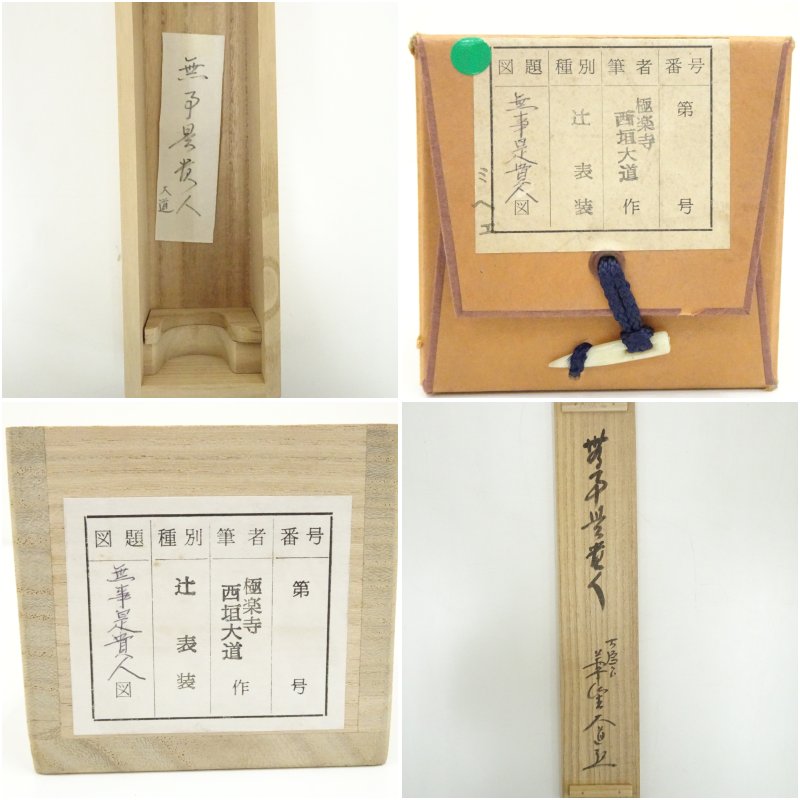 無事是貴人
大道
図題 種別 筆者 番号
無事是貴人図
辻表装
極楽寺
西垣大道作
第 号
ミヘエ
図題 種別 筆者 番号
無事是貴人図
辻表装
極楽寺
西垣大道作
第 号
無事是貴人